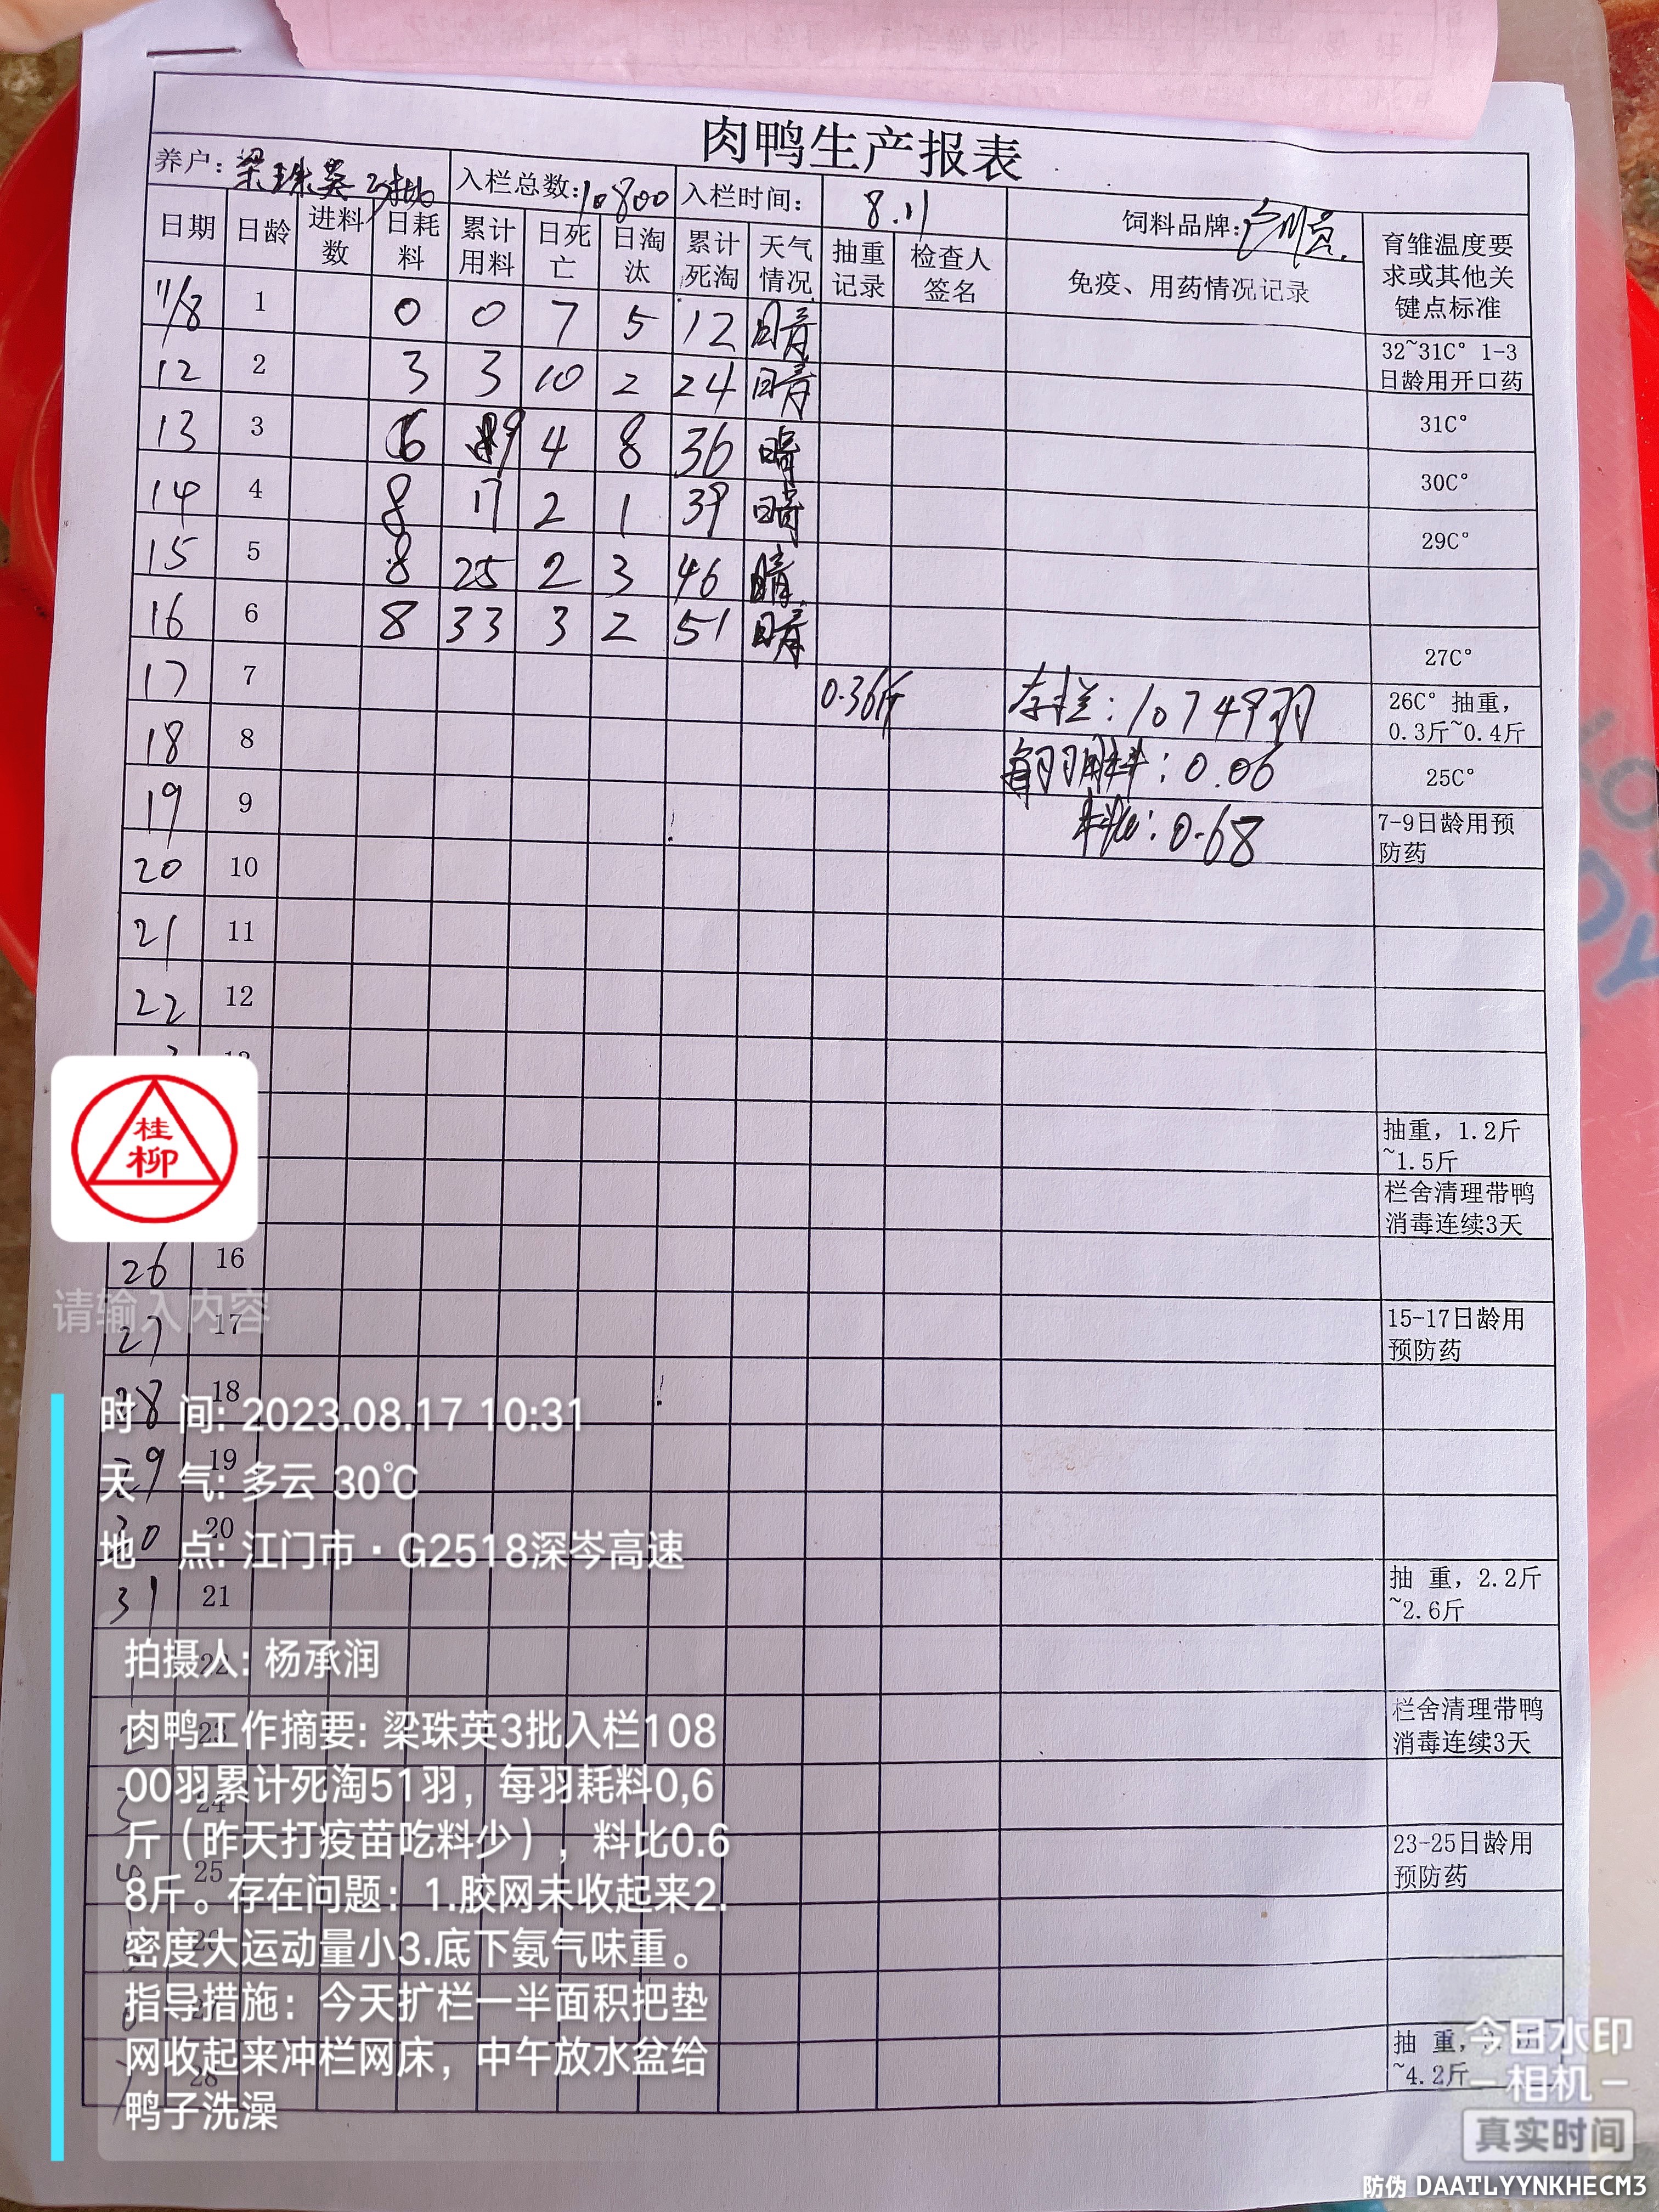 肉鸭生产报表
养户：梁珠英3批 入栏总数：10800 入栏时间： 8.11 饲料品牌：
日期 日龄 进料数 日耗料 累计用料 日死亡 日淘汰 累计死淘 天气情况 抽重记录 检查人签名 免疫、用药情况记录 育雏温度要求或其他关键点标准
11/8 1 0 0 7 5 12 晴 32~31C° 1-3日龄用开口药
12 2 3 3 10 2 24 晴
13 3 6 9 4 8 36 晴 31C°
14 4 8 17 2 1 39 晴 30C°
15 5 8 25 2 3 46 晴 29C°
16 6 8 33 3 2 51 晴 27C°
17 7 0.36斤 存栏：10749羽 26C° 抽重，0.3斤~0.4斤
18 8 每羽用料：0.06 25C°
19 9 料比：0.68 7-9日龄用预防药
20 10
21 11
22 12
抽重，1.2斤~1.5斤
栏舍清理带鸭消毒连续3天
桂
柳
26 16
请输入内容
27 17 15-17日龄用预防药
28 18
29 19
30 20
31 21 抽 重，2.2斤~2.6斤
22
2 23 栏舍清理带鸭消毒连续3天
3 24
25 23-25日龄用预防药
26
27
28 抽 重，
~4.2斤
时 间: 2023.08.17 10:31
天 气: 多云 30℃
地 点: 江门市·G2518深岑高速
拍摄人: 杨承润
肉鸭工作摘要: 梁珠英3批入栏108
00羽累计死淘51羽，每羽耗料0,6
斤（昨天打疫苗吃料少），料比0.6
8斤。存在问题：1.胶网未收起来2.
密度大运动量小3.底下氨气味重。
指导措施：今天扩栏一半面积把垫
网收起来冲栏网床，中午放水盆给
鸭子洗澡
今日水印
相机
真实时间
防伪 DAATLYYNKHECM3